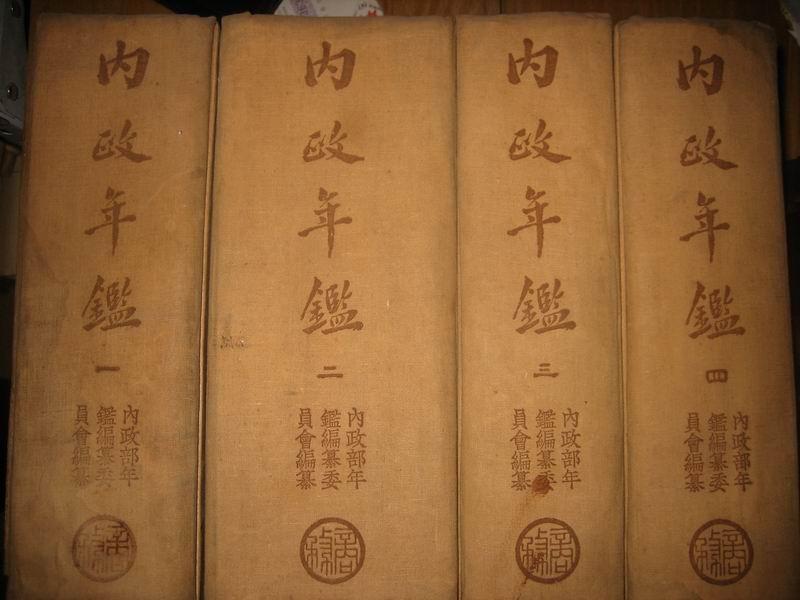 內政年鑑
一
內政部年
鑑編纂委
員會編纂
商務
內政年鑑
二
內政部年
鑑編纂委
員會編纂
商務
內政年鑑
三
內政部年
鑑編纂委
員會編纂
商務
內政年鑑
四
內政部年
鑑編纂委
員會編纂
商務